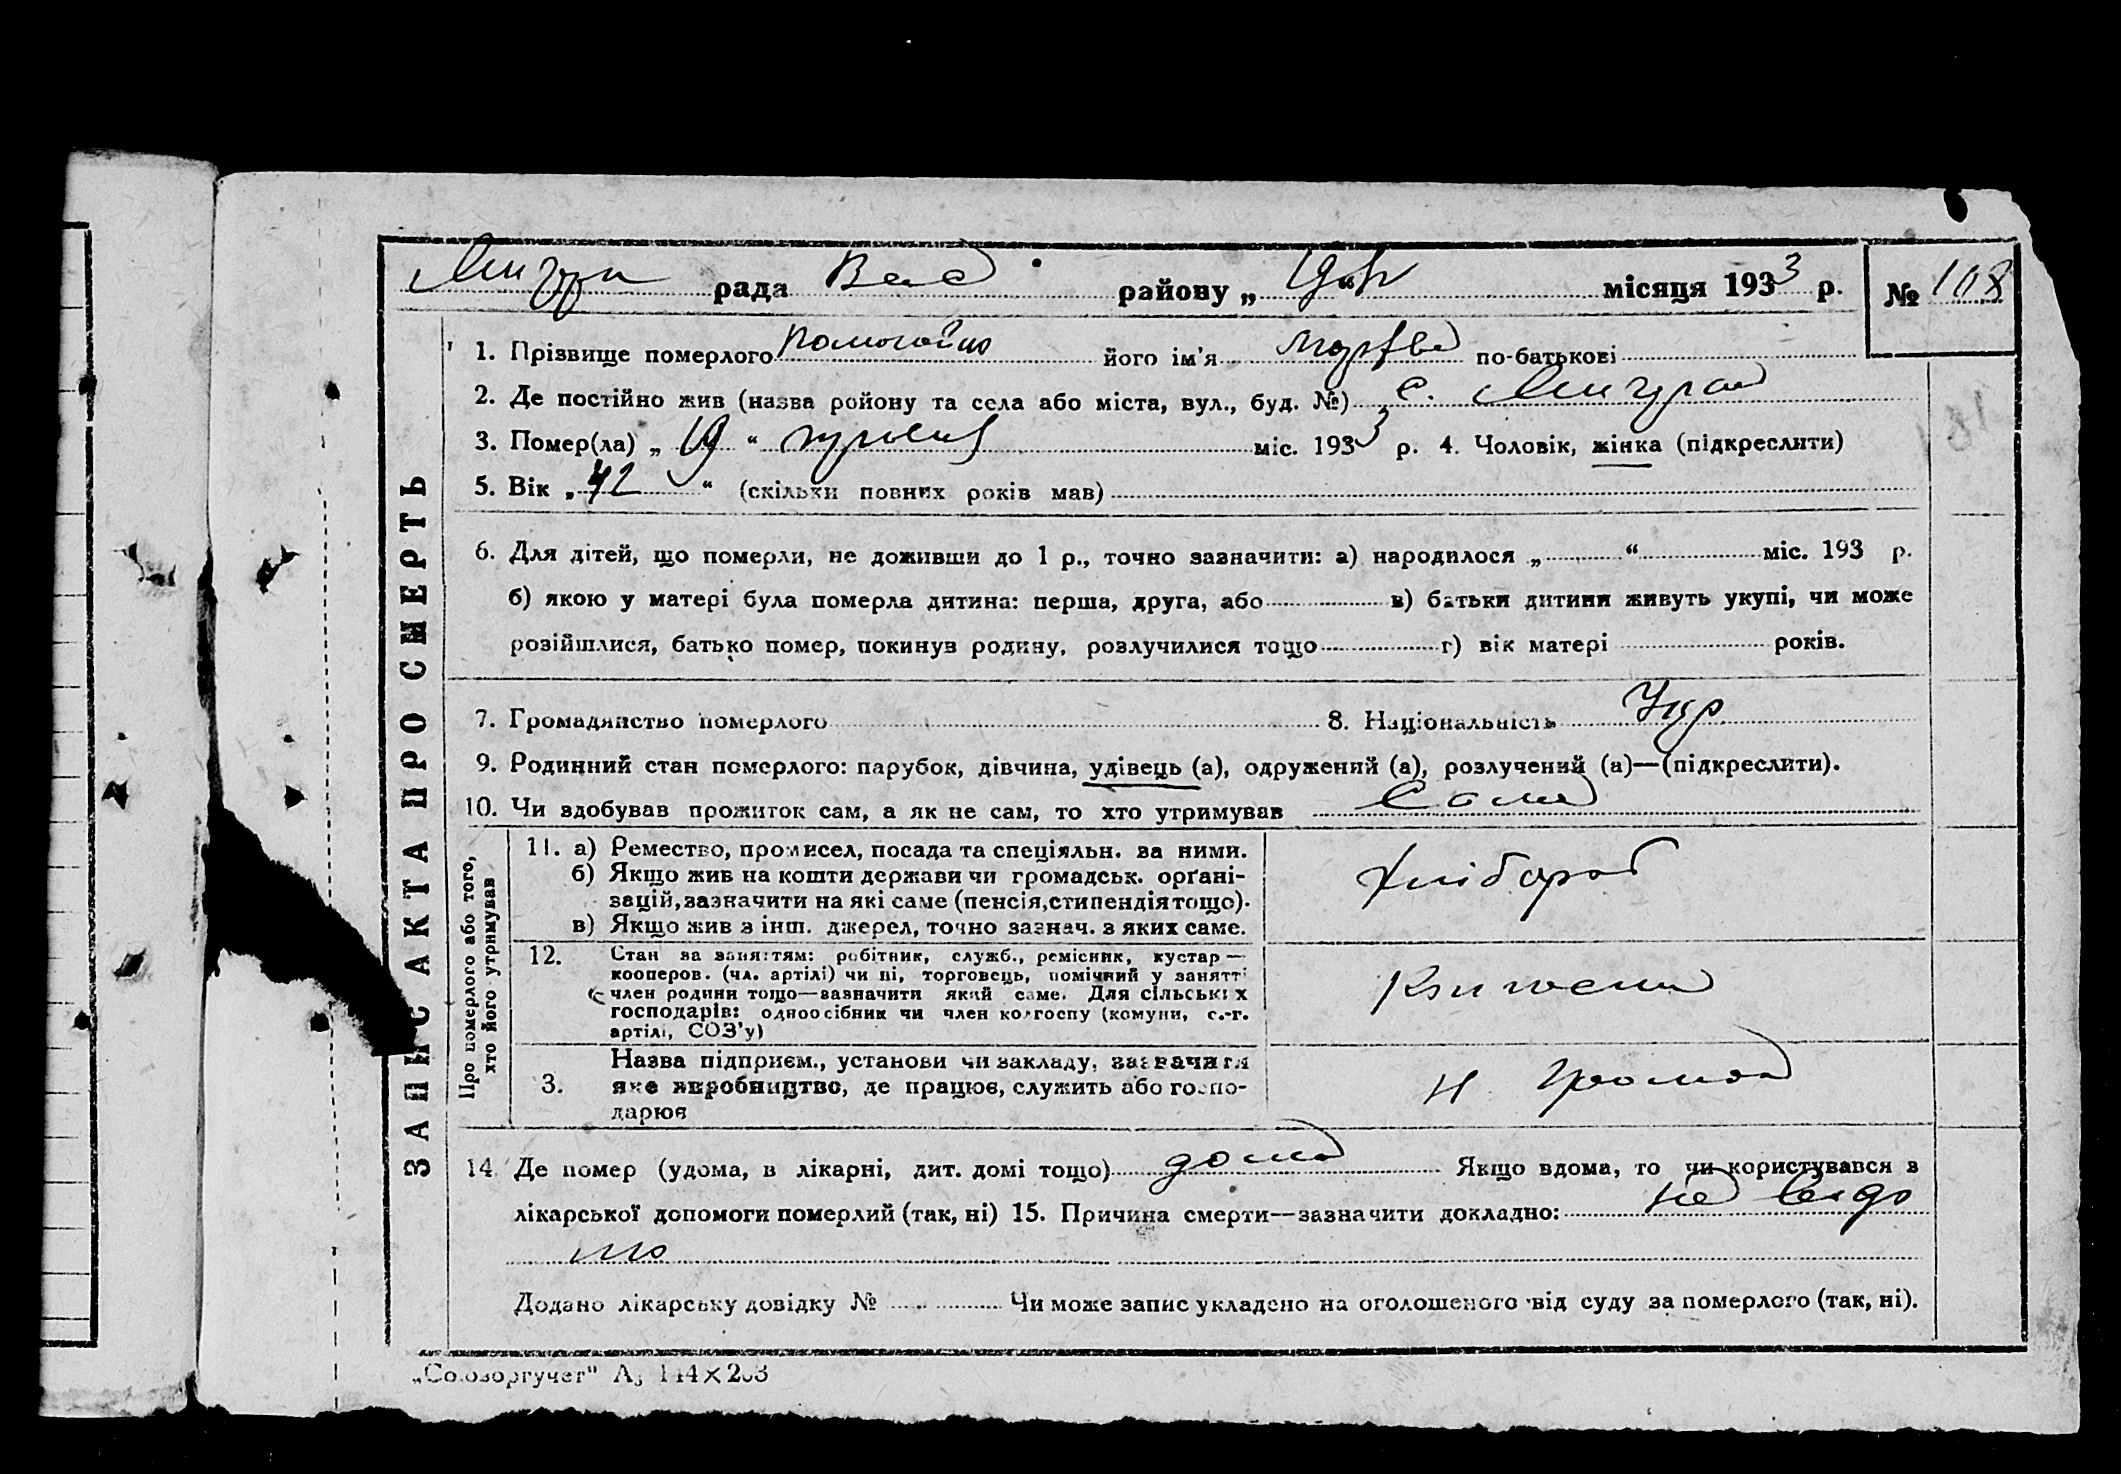 рада Вас району „19“ місяця 1933 р. № 108
1. Прізвище померлого його ім'я по-батькові
2. Де постійно жив (назва ройону та села або міста, вул., буд. №) с.
3. Помер(ла) „19“ міс. 1933 р. 4. Чоловік, жінка (підкреслити)
5. Вік „42“ (скільки повних років мав)
6. Для дітей, що померли, не доживши до 1 р., точно зазначити: а) народилося „ “ міс. 193 р.
б) якою у матері була померла дитина: перша, друга, або в) батьки дитини живуть укупі, чи може
розійшлися, батько помер, покинув родину, розлучилися тощо г) вік матері років.
7. Громадянство померлого 8. Національність Укр
9. Родинний стан померлого: парубок, дівчина, удівець (а), одружений (а), розлучений (а)—(підкреслити).
10. Чи здобував прожиток сам, а як не сам, то хто утримував Сама
ЗАПИС АКТА ПРО СМЕРТЬ
Про померлого або того,
хто його утримував
11. а) Ремество, промисел, посада та спеціяльн. за ними.
б) Якщо жив на кошти держави чи громадськ. орґані-
зацій, зазначити на які саме (пенсія, стипендія тощо).
в) Якщо жив з інш. джерел, точно зазнач. з яких саме.
хлібороб
12. Стан за заняттям: робітник, служб., ремісник, кустар —
кооперов. (чл. артілі) чи ні, торговець, помічний у занятті
член родини тощо—зазначити який саме. Для сільських
господарів: одноосібник чи член колгоспу (комуни, с.-г.
артілі, СОЗ'у)
3. Назва підприєм., установи чи закладу, зазначити
яке виробництво, де працює, служить або госпо-
дарює
14. Де помер (удома, в лікарні, дит. домі тощо) дома Якщо вдома, то чи користувався з
лікарської допомоги померлий (так, ні) 15. Причина смерти—зазначити докладно: не видо
мо
Додано лікарську довідку № Чи може запис укладено на оголошеного від суду за померлого (так, ні).
„Союзоргучет“ А5 144×203